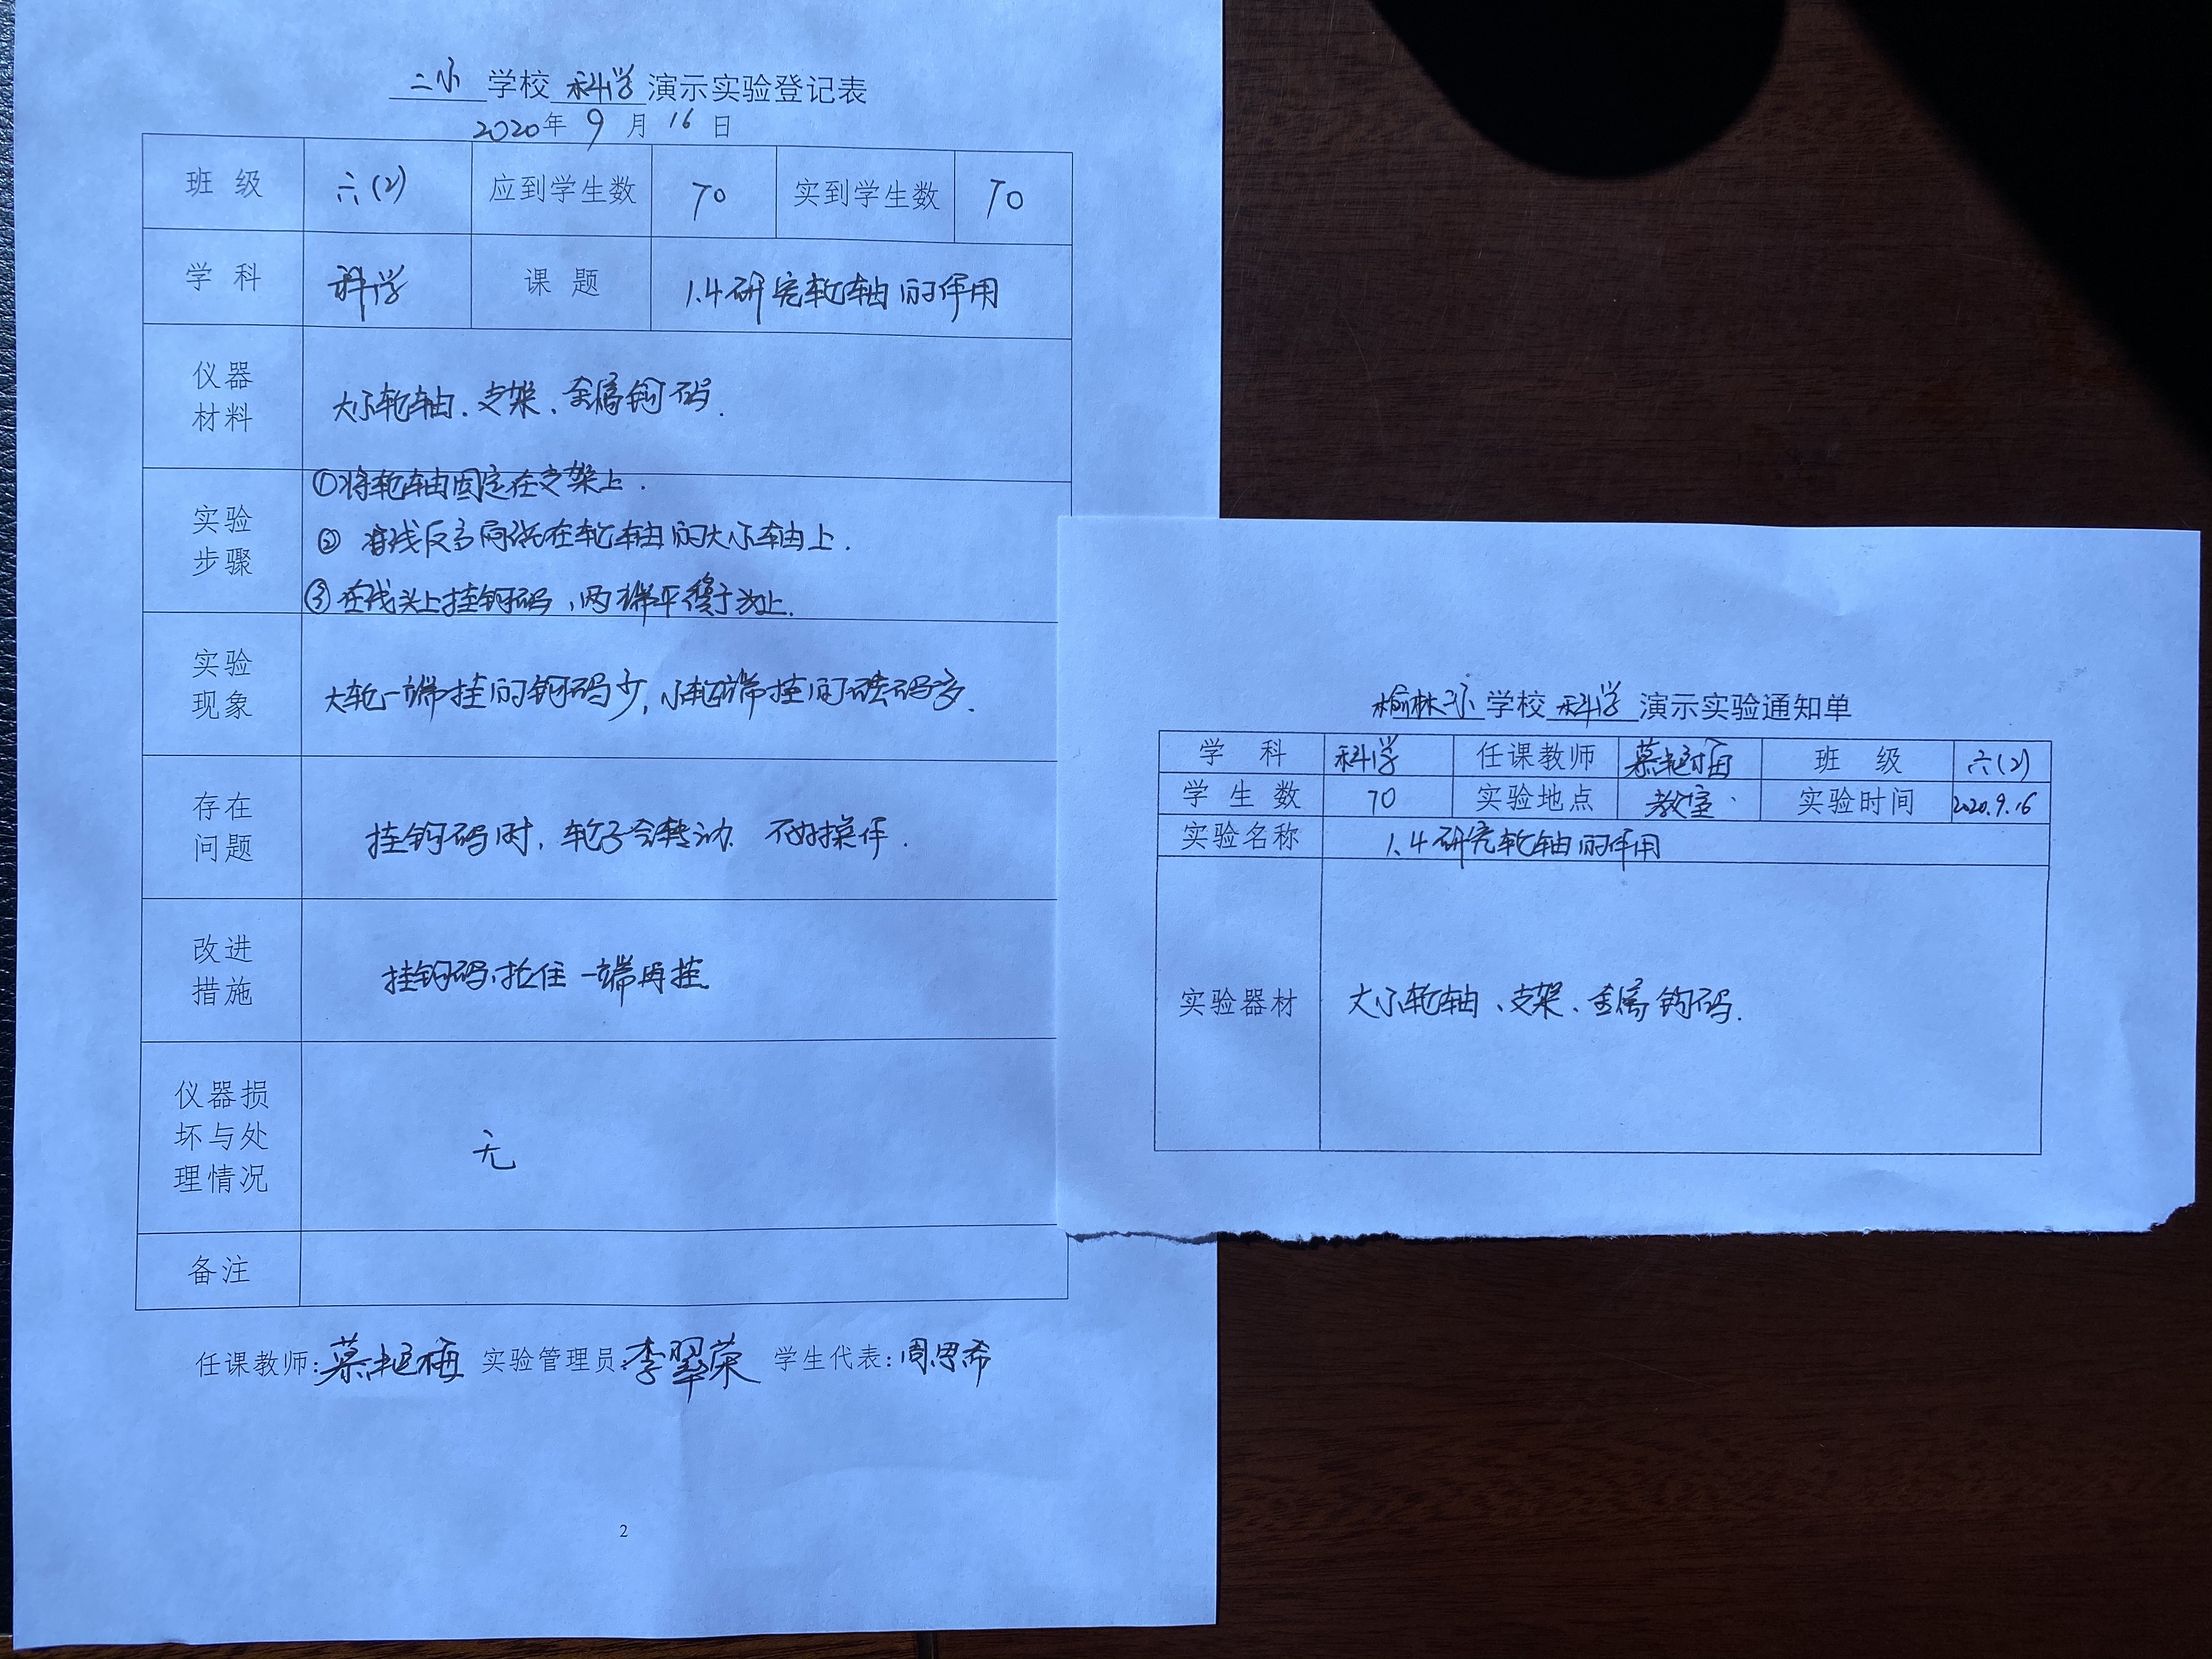 二小学校科学演示实验登记表
2020年 9 月 16 日
班 级 六(2) 应到学生数 70 实到学生数 70
学 科 科学 课 题 1.4研究轮轴的作用
仪器
材料
大小轮轴、支架、金属钩码.
实验
步骤
①将轮轴固定在支架上.
② 线反方向绕在轮轴的大小轴上.
③在线头上挂钩码,两端平衡为止.
实验
现象
大轮一端挂的钩码少,小轮端挂的砝码多.
存在
问题
挂钩码时,轮子会转动.不好操作.
改进
措施
挂钩码,拉住一端再挂.
仪器损
坏与处
理情况
无
备注
任课教师:慕艳梅 实验管理员:李翠荣 学生代表:周思希
2
榆林二小学校科学演示实验通知单
学 科 科学 任课教师 慕艳梅 班 级 六(2)
学 生 数 70 实验地点 教室. 实验时间 2020.9.16
实验名称 1.4研究轮轴的作用
实验器材 大小轮轴、支架、金属钩码.